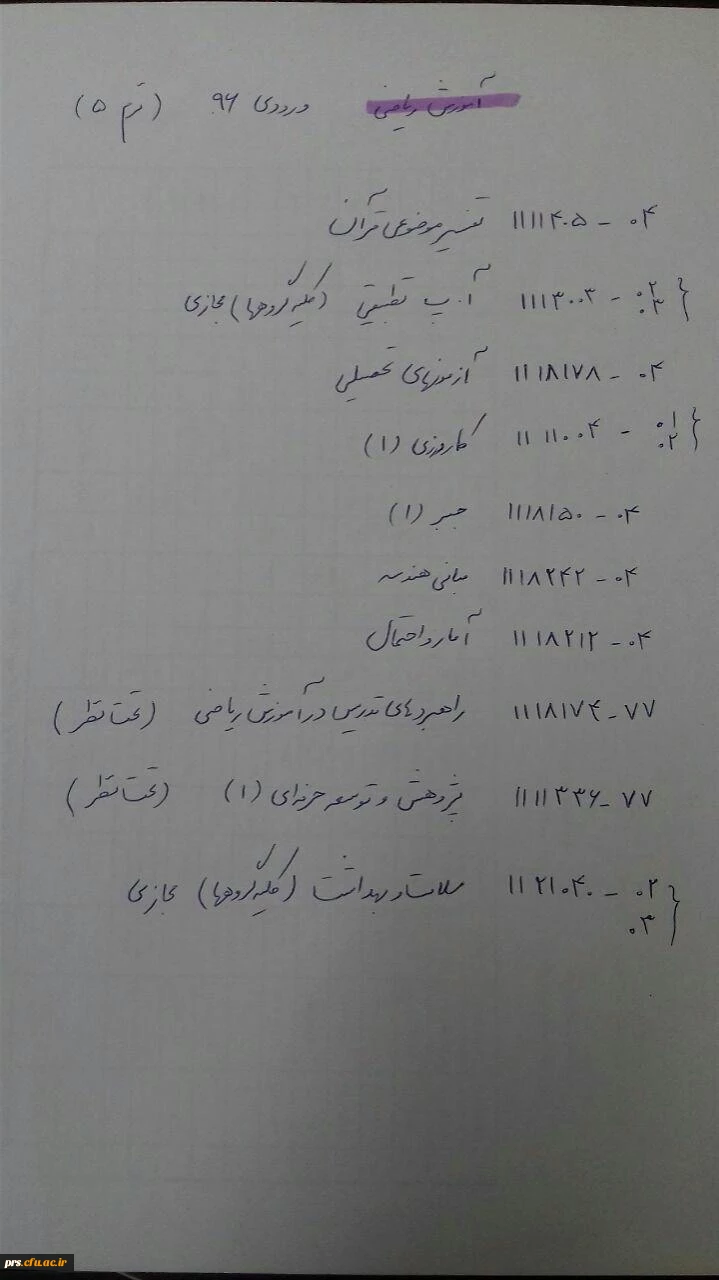 آموزش ریاضی ورودی ۹۶ (ترم ۵)
۱۱۱۱۴۰۵ - ۰۴ تفسیر موضوعی قرآن
۱۱۱۳۰۰۳ - ۰۲ ۰۳ { آ.پ تطبیقی (کلیه گروهها) مجازی
۱۱۱۸۱۷۸ - ۰۴ آزمونهای تحصیلی
۱۱۱۱۰۰۴ - ۰۱ ۰۲ { کارورزی (۱)
۱۱۱۸۱۵۰ - ۰۴ جبر (۱)
۱۱۱۸۲۴۲ - ۰۴ مبانی هندسه
۱۱۱۸۲۱۲ - ۰۴ آمار و احتمال
۱۱۱۸۱۷۴ - ۷۷ راهبردهای تدریس در آموزش ریاضی (تحت نظر)
۱۱۱۱۳۳۶ - ۷۷ پژوهش و توسعه حرفه‌ای (۱) (تحت نظر)
۱۱۲۱۰۴۰ - ۰۲ ۰۳ { سلامت و بهداشت (کلیه گروهها) مجازی
prs.cfu.ac.ir